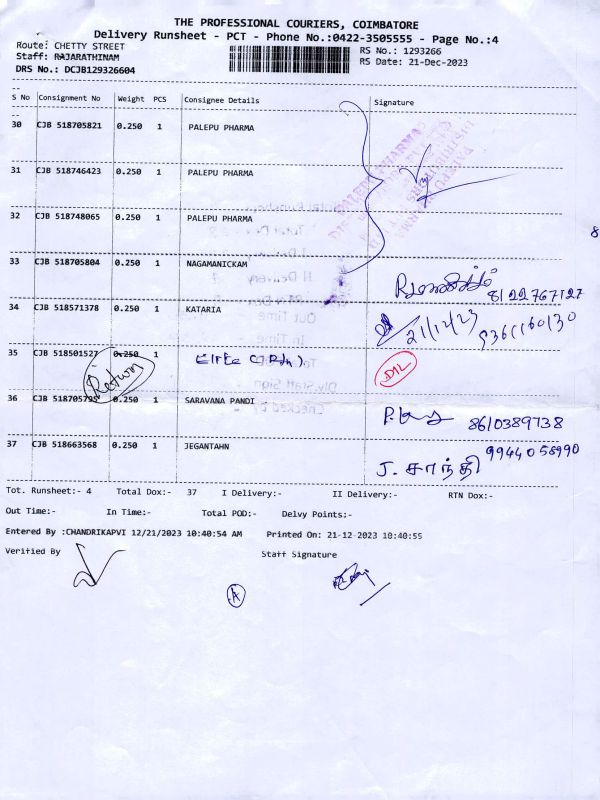 THE PROFESSIONAL COURIERS, COIMBATORE
Delivery Runsheet - PCT - Phone No.:0422-3505555 - Page No.:4
Route: CHETTY STREET RS No.: 1293266
Staff: RAJARATHINAM RS Date: 21-Dec-2023
DRS No.: DCJB129326604
S No Consignment No Weight PCS Consignee Details Signature
30 CJB 518705821 0.250 1 PALEPU PHARMA
31 CJB 518746423 0.250 1 PALEPU PHARMA
32 CJB 518748065 0.250 1 PALEPU PHARMA
8
33 CJB 518705804 0.250 1 NAGAMANICKAM
8122767127
34 CJB 518571378 0.250 1 KATARIA
21/12/23 9361160130
35 CJB 518501527 0.250 1
Return
36 CJB 518705795 0.250 1 SARAVANA PANDI
8610389738
37 CJB 518663568 0.250 1 JEGANTAHN
9944058990
J. சாந்தி
Tot. Runsheet:- 4 Total Dox:- 37 I Delivery:- II Delivery:- RTN Dox:-
Out Time:- In Time:- Total POD:- Delvy Points:-
Entered By :CHANDRIKAPVI 12/21/2023 10:40:54 AM Printed On: 21-12-2023 10:40:55
Verified By Staff Signature
A